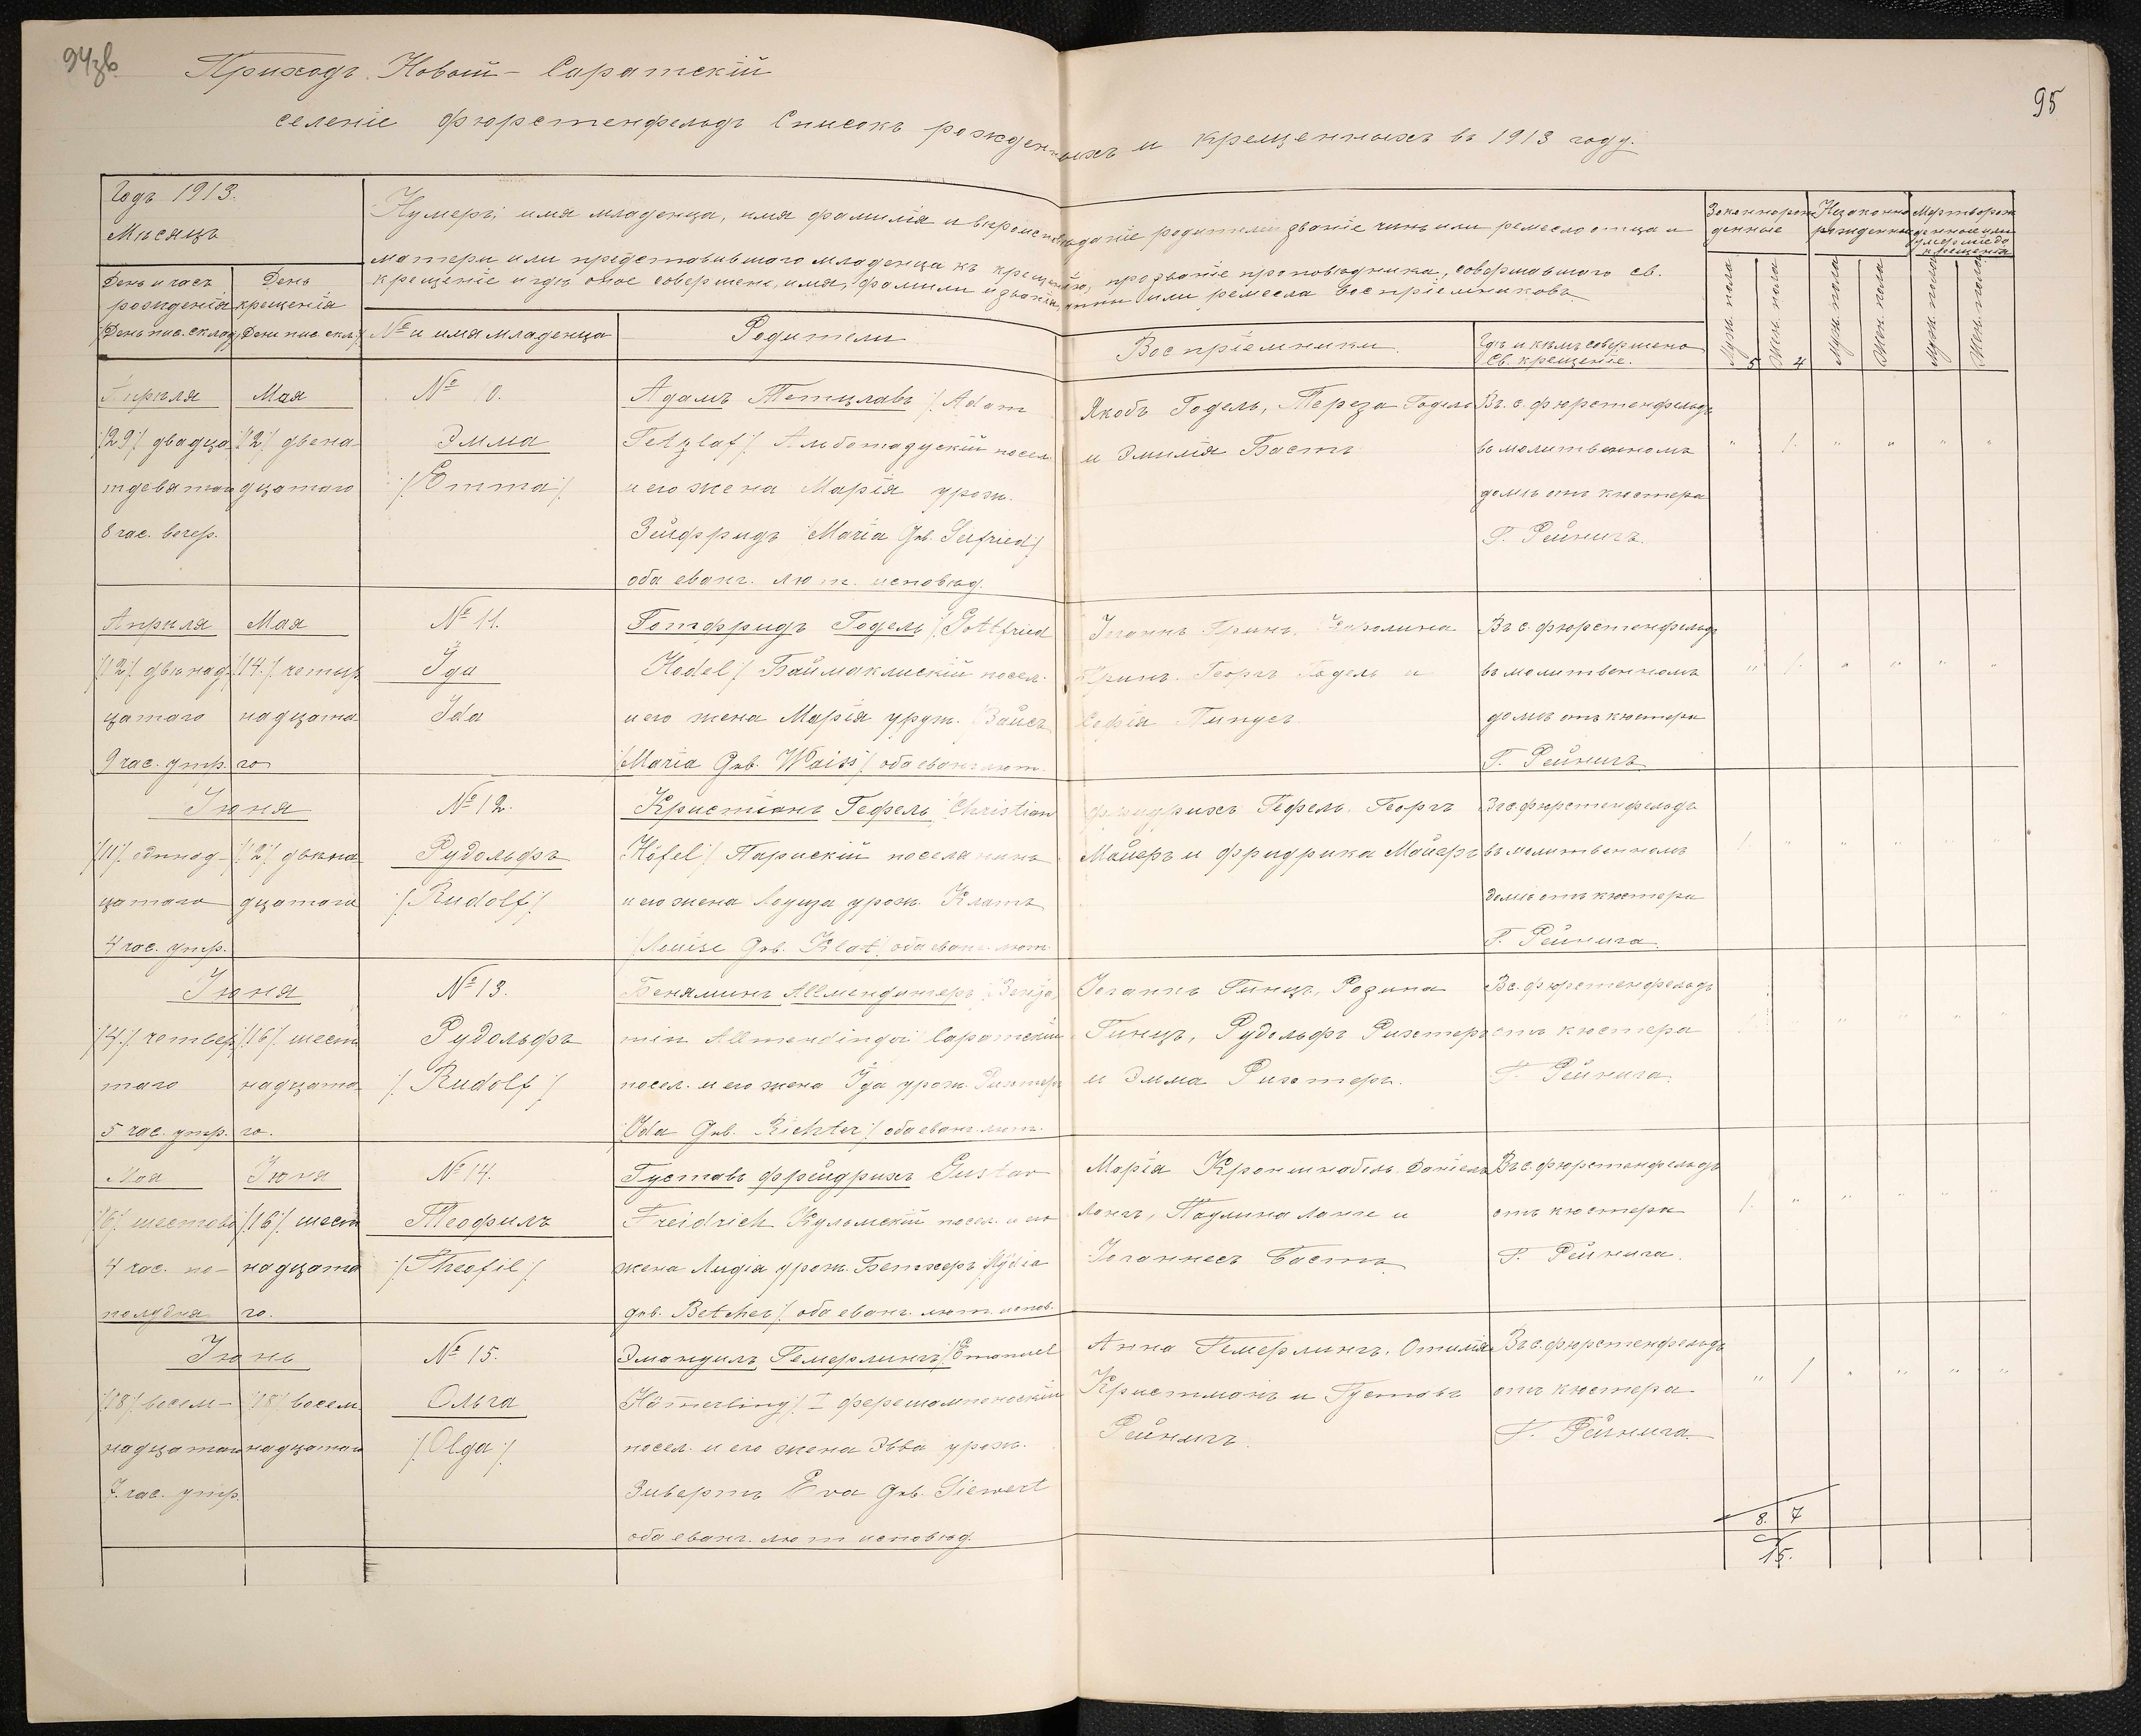 94зв.
95
Приходъ Новой-Саратскій
селеніе Фюрстенфельдъ Списокъ рожденныхъ и крещенныхъ въ 1913 году.
Годъ 1913.
Мѣсяцъ
День и часъ рожденія
День крещенія
Нумеръ, имя младенца, имя фамилія и вѣроисповѣданіе родителей званіе чинъ или ремесло отца и
матери или представившаго младенца къ крещенію, прозваніе проповѣдника, совершавшаго св.
крещеніе и гдѣ оное совершено, имя, фамиліи и званія, чины или ремесла воспріемниковъ.
№ и имя младенца
Родители
Воспріемники.
Гдѣ и кѣмъ совершено
Св. крещеніе.
Законнорож
денные
Незаконно
рожденные
Мертворож
денные или
умершіе до
крещенія
Муж. пола
Жен. пола
Муж. пола
Жен. пола
Муж. пола
Жен. пола
5
4
Апрѣля
/29/ двадца
тдевятаго
8 час. вечер.
Мая
/12/ двена
дцатаго
№ 10.
Эмма
/Emma/
Адамъ Тетцлавъ /Adam
Tetzlaf/ Альботадускій посел.
и его жена Марія урож.
Зейфридъ /Maria Geb. Seifried/
оба еванг. лют. исповѣд.
Якобъ Годель, Тереза Годель
и Эмилія Бастъ
Въ с. Фюрстенфельдъ
въ молитвенномъ
домѣ отъ кюстера
Г. Рейнигъ.
" 1. " " " "
Апрѣля
/12/ двѣнад
цатаго
9 час. утр.
Мая
/14./ четыр
надцата
го
№ 11.
Ида
Ida
Готфридъ Годель /Gottfried
Hodel/ Баймаклискій посел.
и его жена Марія урож. Вайсъ
/Maria Geb. Waiss/ оба еванг. лют.
Іоганнъ Гринъ. Каролина
Гринъ. Георгъ Годель и
Софія
Въ с. Фюрстенфельдъ
въ молитвенномъ
домѣ отъ кюстера
Г. Рейнигъ
" 1. " " " "
Іюня
/11/ одиннад-
цатаго
4 час. утр.
/12/ двѣна
дцатаго
№ 12.
Рудольфъ
/Rudolf/
Кристіанъ Гефель /Christian
Höfel/ Парискій поселянинъ
и его жена Луиза урож. Клатъ
/Louise Geb. Klat/ оба еванг. лют.
Фридрихъ Гефель. Георгъ
Майеръ и Фридрика Майеръ
Въ с. Фюрстенфельдъ
въ молитвенномъ
домѣ отъ кюстера
Г. Рейнига
1. " " " " "
Іюня
/4./ четвер
таго
5 час. утр.
/16/ шест
надцата
го.
№ 13.
Рудольфъ
/Rudolf/
Беняминъ Аллмендингеръ /Benja
min Allmendinger Саратскій
посел. и его жена Ида урож. Рихтеръ
/Ida Geb. Richter/ оба еванг. лют.
Іоганнъ Гинцъ, Розина
Гинцъ, Рудольфъ Рихтеръ
и Эмма Рихтеръ.
Въ с. Фюрстенфельдъ
отъ кюстера
Г. Рейнига.
Мая
/6/ шестово
4 час. по-
полудня
Іюня
/16/ шест
надцата
го.
№ 14.
Теофилъ
/Theofil/
Густавъ Фрейдрихъ Gustav
Freidrich Кульмскій посел. и его
жена Лидія урож. Бетхеръ /Lydia
geb. Betcher/ оба еванг. лют. испов.
Марія Даніелъ
Лангъ, Паулина Ланге и
Іоганнесъ Бастъ
Въ с. Фюрстенфельдъ
отъ кюстера
Г. Рейнига.
1. " " " " "
Іюнь
/18/ восем-
надцатаго
7. час. утр.
/18/ восем
надцатаго
№ 15.
Ольга
/Olga/
Эмануилъ Гемерлингъ /Emanuel
Hämerling/ I Фершампенаскій
посел. и его жена Эва урож.
Зивертъ Eva Geb. Siewert
оба еванг. лют исповѣд.
Анна Гемерлингъ. Отилія
Кристманъ и Густавъ
Рейнигъ.
Въ с. Фюрстенфельдъ
отъ кюстера
Г. Рейнига.
" 1 " " " "
8. 7
15.